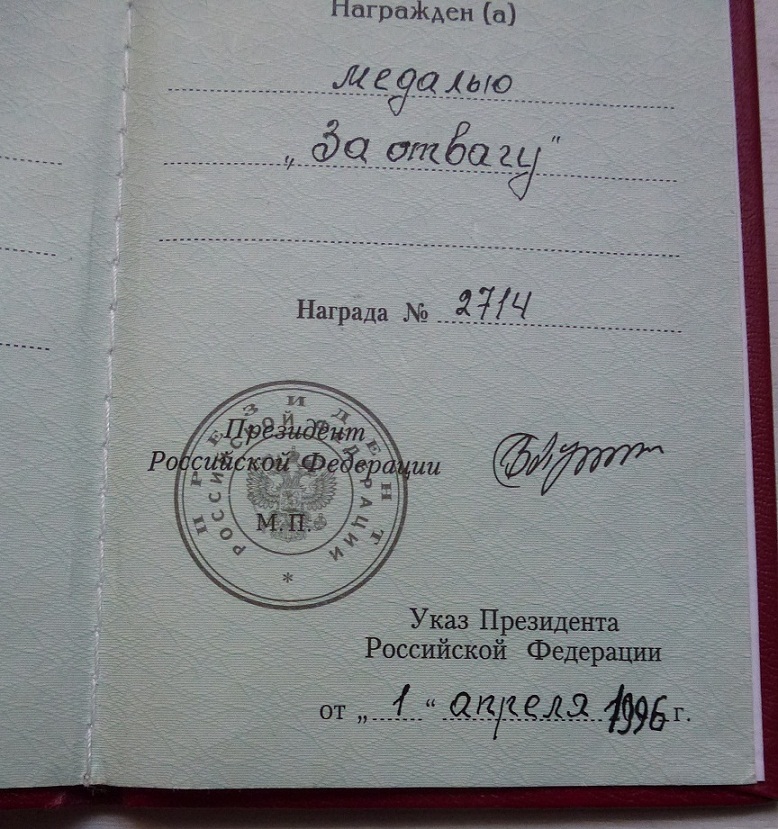 Награжден (а)
медалью
„За отвагу"
Награда № 2714
ПРЕЗИДЕНТ
РОССИЙСКОЙ ФЕДЕРАЦИИ
*
Президент
Российской Федерации
М. П.
Указ Президента
Российской Федерации
от „ 1 “ апреля 1996 г.